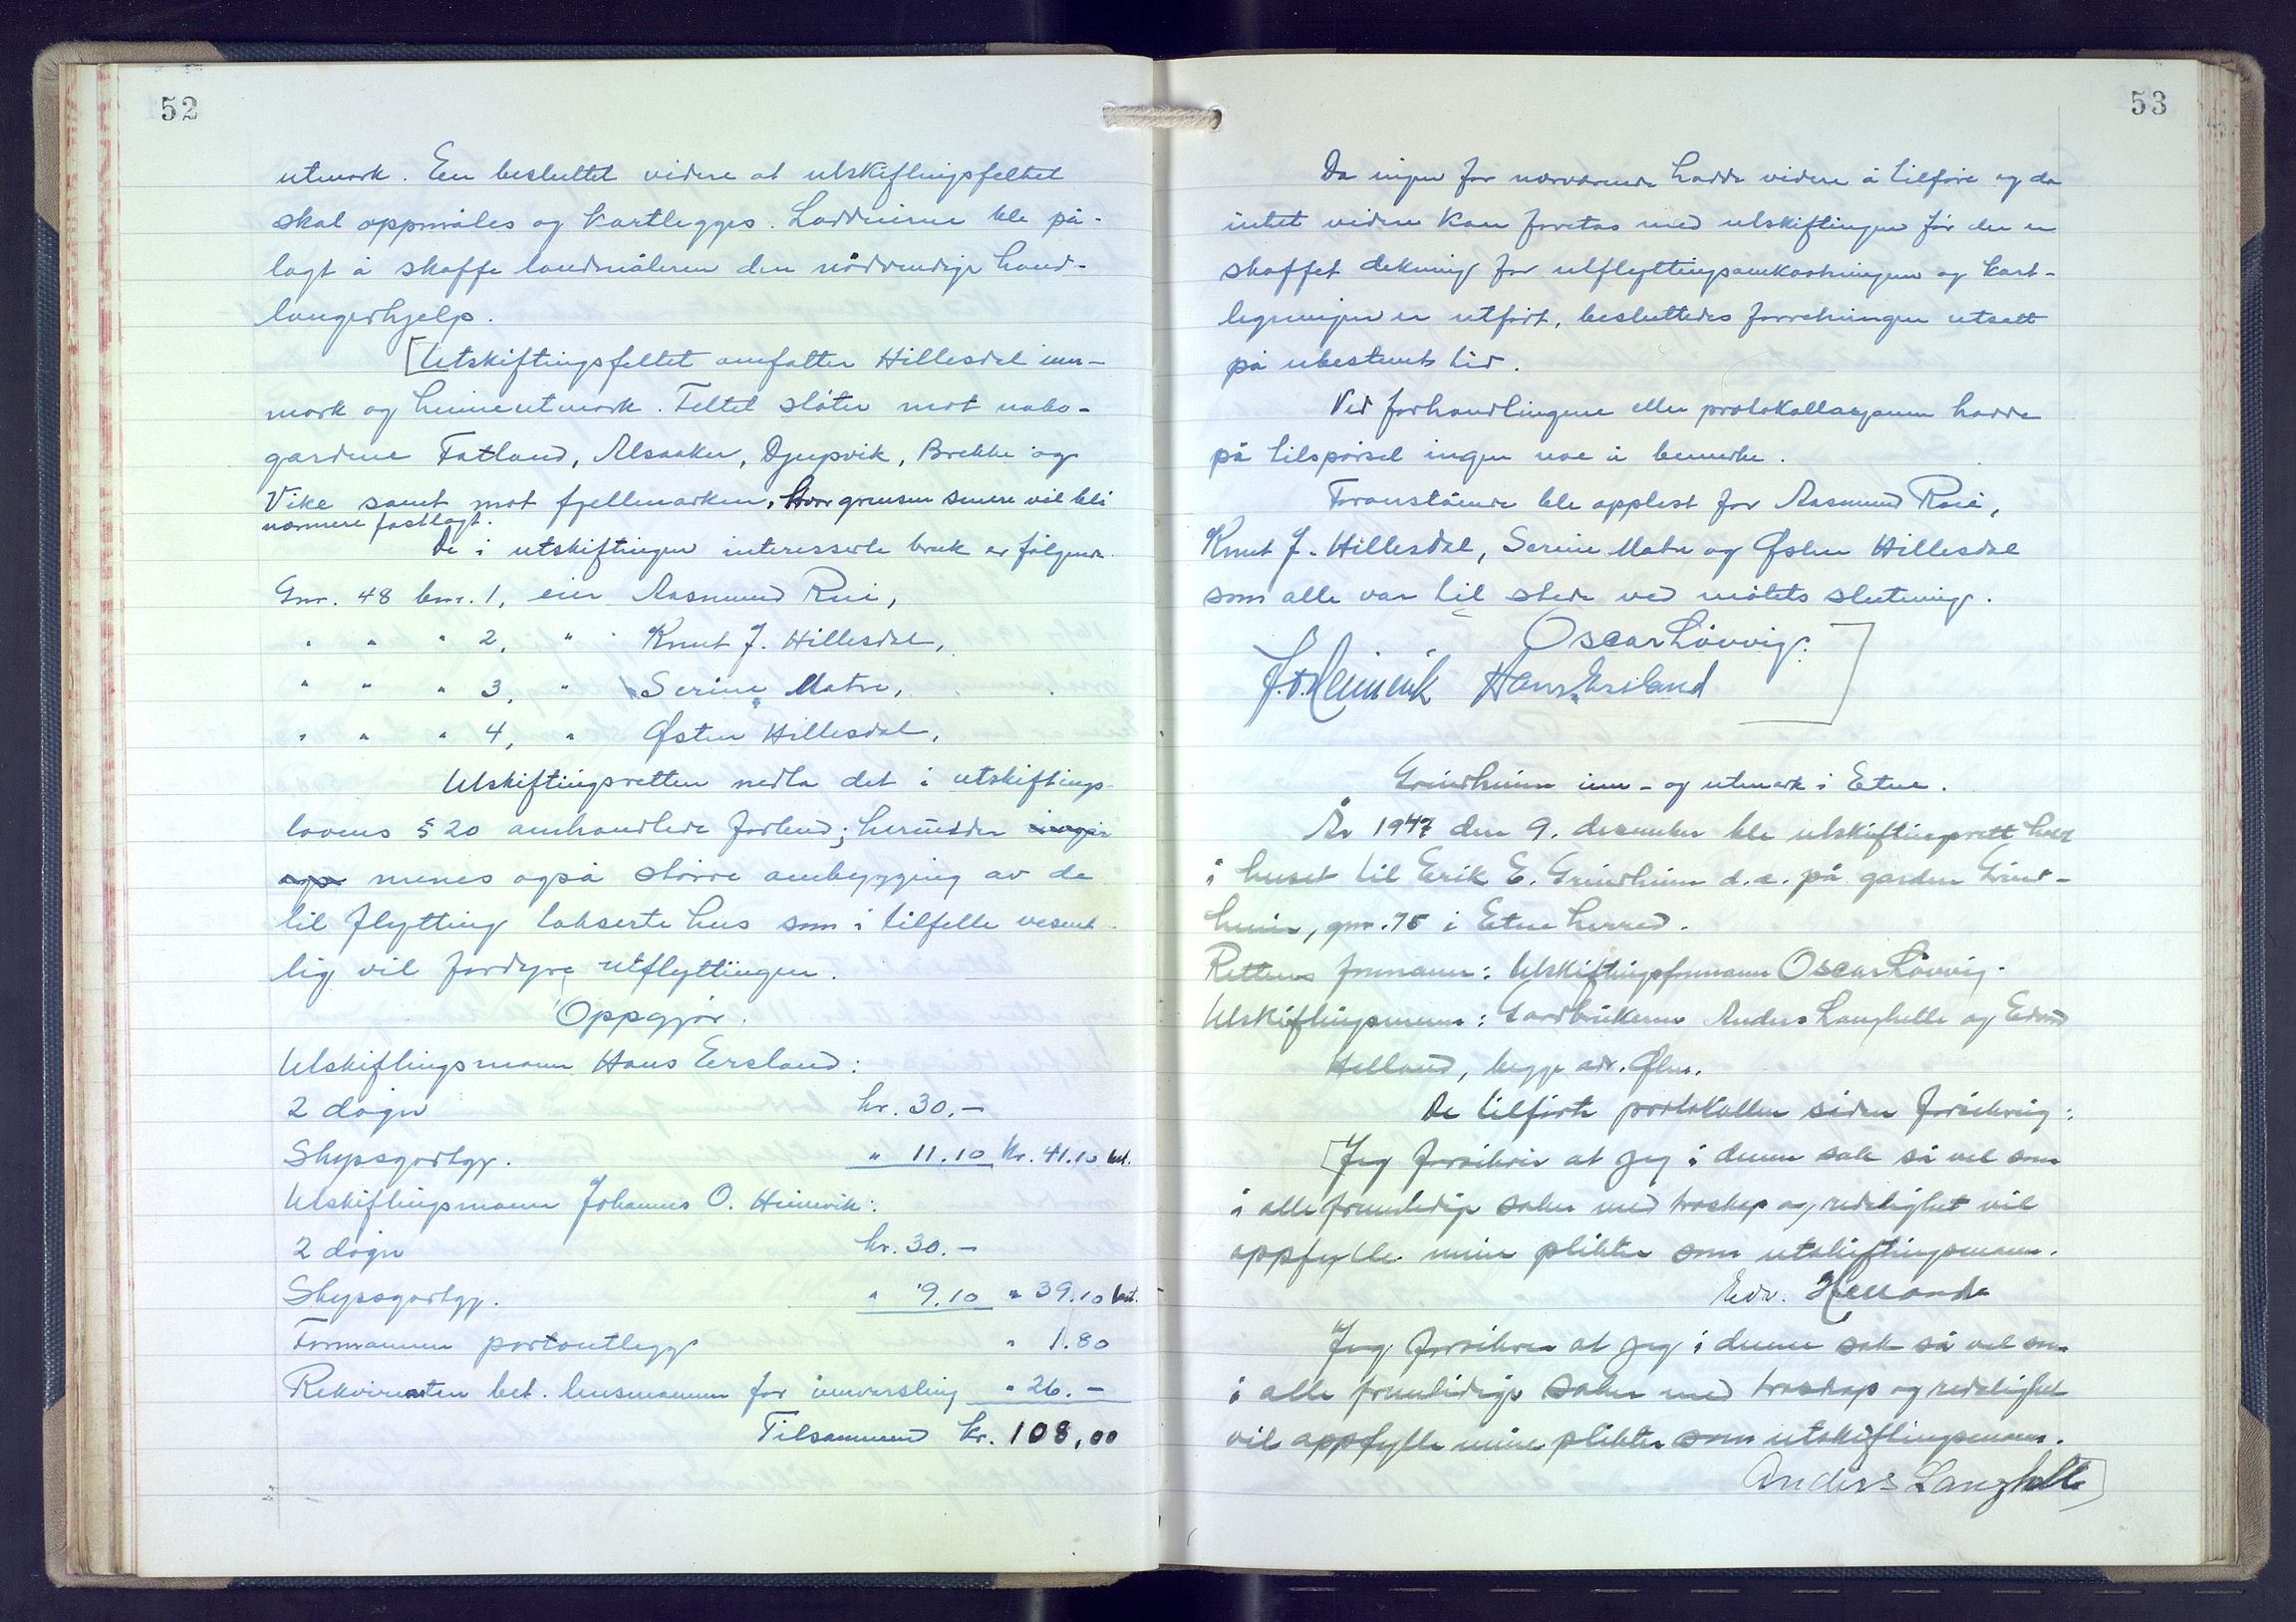 52
utmark. Een besluttet videre at utskiftingsfeltet
skal oppmåles og kartlegges. Loddeierne ble på-
lagt å skaffe landmåleren den nødvendige hand-
langerhjelp.
[Utskiftingsfeltet omfatter Hillesdal inn-
mark og heimeutmark. Feltet støter mot nabo-
gardene Fatland, Alsaaker, Djupvik, Brekke og
Vike samt mot fjellmarken, hvor grensen senere vil bli
nærmere fastlagt.
De i utskiftingen interesserte bruk er følgende
Gnr. 48 bnr. 1, eier Aasmund Rui,
" " " 2, " Knut J. Hillesdal,
" " " 3, " Serine Matre,
" " " 4, " Østen Hillesdal,
Utskiftingsretten nedla det i utskiftings-
lovens § 20 omhandlede forbud; herunder
menes også større ombygging av de
til flytting takserte hus som i tilfelle vesent-
lig vil fordyre utflyttingen.
Oppgjør.
Utskiftingsmann Hans Ersland:
2 døgn kr. 30.-
Skyssgodtgj. " 11.10 kr. 41.10 bet.
Utskiftingsmann Johannes O. Heimvik:
2 døgn kr. 30.-
Skyssgodtgj. " 9.10 " 39.10 bet.
Formannen portoutlegg " 1.80
Rekvirenten bet. husmannen for innvarsling " 26.-
Tilsammen kr. 108,00
53
Da ingen for nærværende hadde videre å tilføre og da
intet videre kan foretas med utskiftingen før der er
skaffet dekning for utflyttingsomkostningene og kart-
legningen er utført, besluttedes forretningen utsatt
på ubestemt tid.
Ved forhandlingene eller protokollasjonen hadde
på tilspørsel ingen noe å bemerke.
Foranstående ble opplest for Aasmund Rui,
Knut J. Hillesdal, Serine Matre og Østen Hillesdal
som alle var til stede ved møtets slutning.
Oscar Løvvig.
J. O. Heimvik Hans Ersland]
Grindheim inn- og utmark i Etne.
År 1947 den 9. desember ble utskiftingsrett holdt
i huset til Erik E. Grindheim d.e. på garden Grind-
heim, gnr. 75 i Etne herred.
Rettens formann: Utskiftingsformann Oscar Løvvig.
Utskiftingsmenn: Gardbrukerne Anders Langhelle og Edvard
Helland, begge adr. Ølen.
De tilførte protokollen sådan forsikring:
[Jeg forsikrer at jeg i denne sak så vel som
i alle fremtidige saker med troskap og redelighet vil
oppfylle mine plikter som utskiftingsmann.
Edv. Helland
Jeg forsikrer at jeg i denne sak så vel som
i alle fremtidige saker med troskap og redelighet
vil oppfylle mine plikter som utskiftingsmann.
Anders Langhelle]